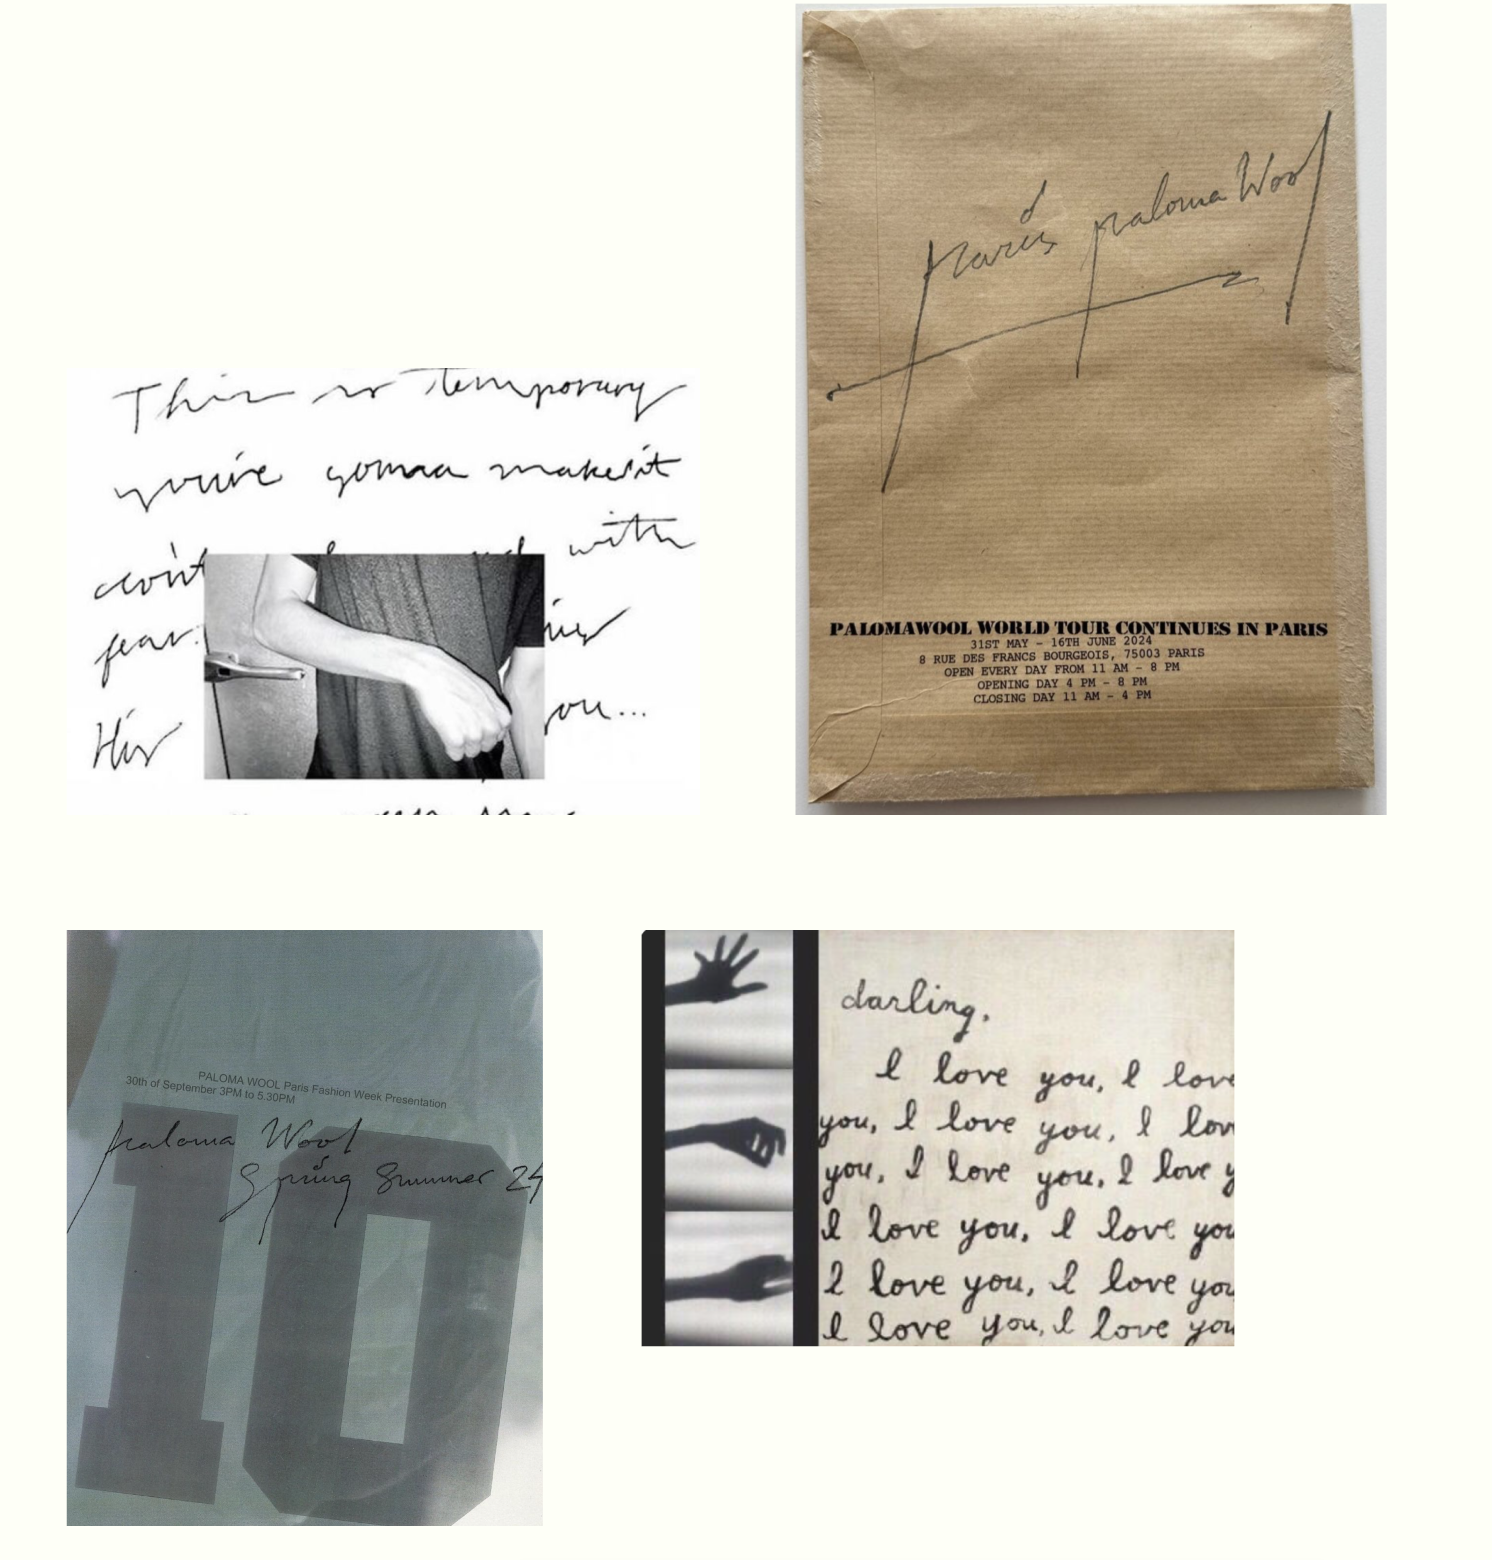 This is temporary
you're gonna make it
don't with
fear.
His you...
paris paloma Wool
PALOMAWOOL WORLD TOUR CONTINUES IN PARIS
31ST MAY - 16TH JUNE 2024
8 RUE DES FRANCS BOURGEOIS, 75003 PARIS
OPEN EVERY DAY FROM 11 AM - 8 PM
OPENING DAY 4 PM - 8 PM
CLOSING DAY 11 AM - 4 PM
PALOMA WOOL Paris Fashion Week Presentation
30th of September 3PM to 5.30PM
paloma Wool
Spring Summer 24
10
darling,
I love you, I love
you, I love you, I lov
you, I love you, I love y
I love you, I love you
I love you, I love you
I love you, I love you